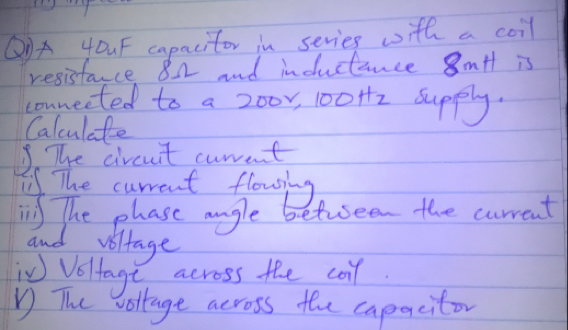 Q1) A 40uF capacitor in series with a coil
resistance 8Ω and inductance 8mH is
connected to a 200V, 100Hz supply.
Calculate
i) The circuit current
ii) The current flowing
iii) The phase angle between the current
and voltage
iv) Voltage across the coil.
v) The voltage across the capacitor